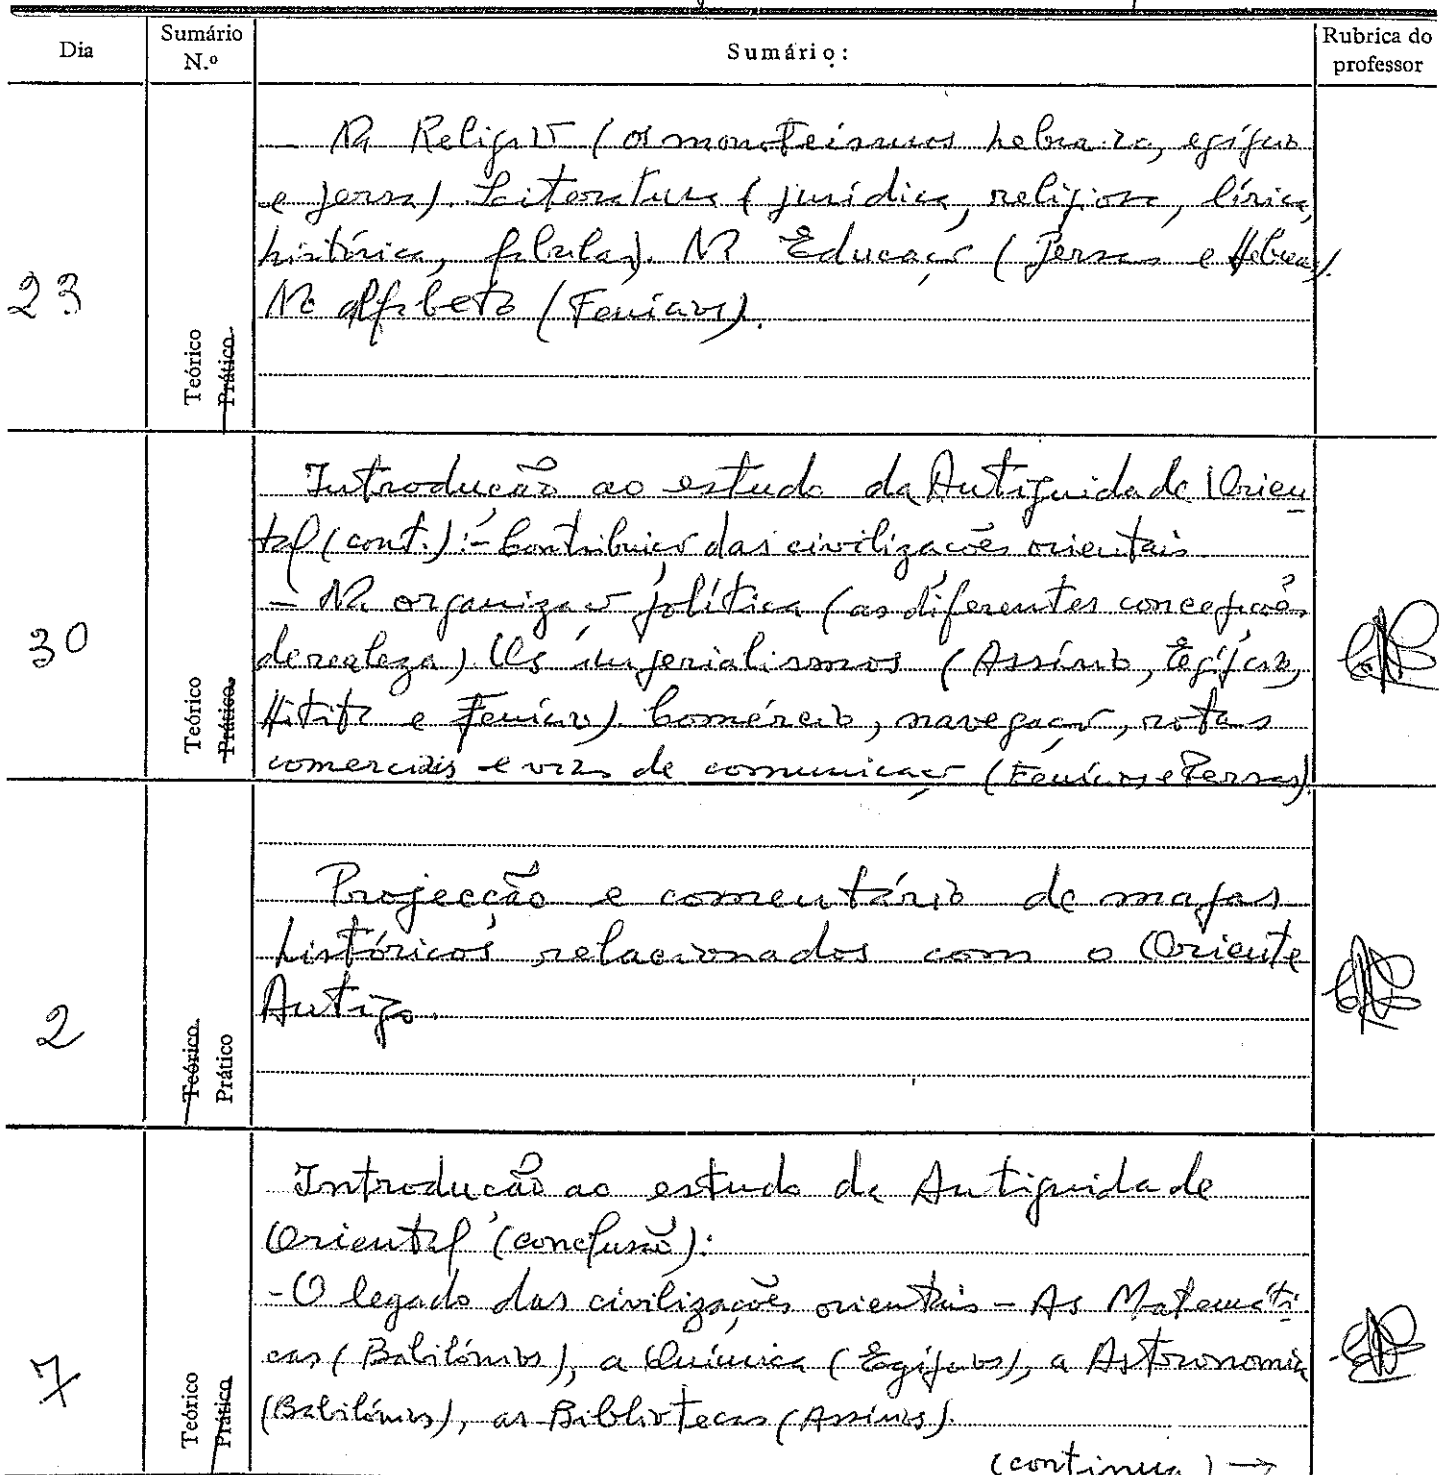 Dia
Sumário N.º
Sumário:
Rubrica do professor
23
Teórico
Prático
- Na Religião (os monoteísmos hebraico, egípcio
e persa). Literatura (jurídica, religiosa, lírica,
histórica, fábulas). Na Educação (Persas e Hebreus).
No alfabeto (Fenícios).
30
Teórico
Prático
Introdução ao estudo da Antiguidade Orien
tal (cont.):- Contribuição das civilizações orientais
- Na organização política (as diferentes concepções
de realeza). Os imperialismos (Assírio, Egípcio,
Hitita e Fenício). Comércio, navegação, rotas
comerciais e vias de comunicação (Fenícios e Persas).
2
Teórico
Prático
Projecção e comentário de mapas
históricos relacionados com o Oriente
Antigo.
7
Teórico
Prático
Introdução ao estudo da Antiguidade
Oriental (conclusão):
- O legado das civilizações orientais - As Matemáti
cas (Babilónios), a Química (Egípcios), a Astronomia
(Babilónios), as Bibliotecas (Assírios).
(continua) →